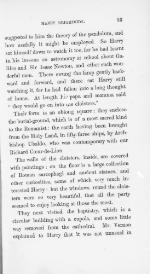 HARRY BRIGHTSIDE.
suggested to him the theory of the pendulum, and
how usefully it might be employed. So Harry
set himself down to watch it too, for he had learnt
in his lessons on astronomy at school about Ga-
lileo and Sir Isaac Newton, and other such won-
derful men. There swung the lamp gently back-
ward and forward, and there sat Harry still
watching it, for he had fallen into a long thought
of home. At length his papa and mamma said
"they would go on into the cloisters."
Their form is an oblong square; they enclose
the burial-ground, which is of a most sacred kind
to the Romanist: the earth having been brought
from the Holy Land, in fifty three ships, by Arch-
bishop Ubaldo, who was contemporary with our
Richard Cœur-de-Lion
The walls of the cloisters, inside, are covered
with paintings; on the floor is a large collection
of Roman sarcophagi and ancient statues, and
other curiosities, some of which very much in-
terested Harry: but the windows round the clois-
ters were so very beautiful, that all the party
seemed to enjoy looking at those the most.
They next visited the baptistry, which is a
circular building with a cupola, and some little
way removed from the cathedral. Mr. Vernon
explained to Harry that it was not unusual in